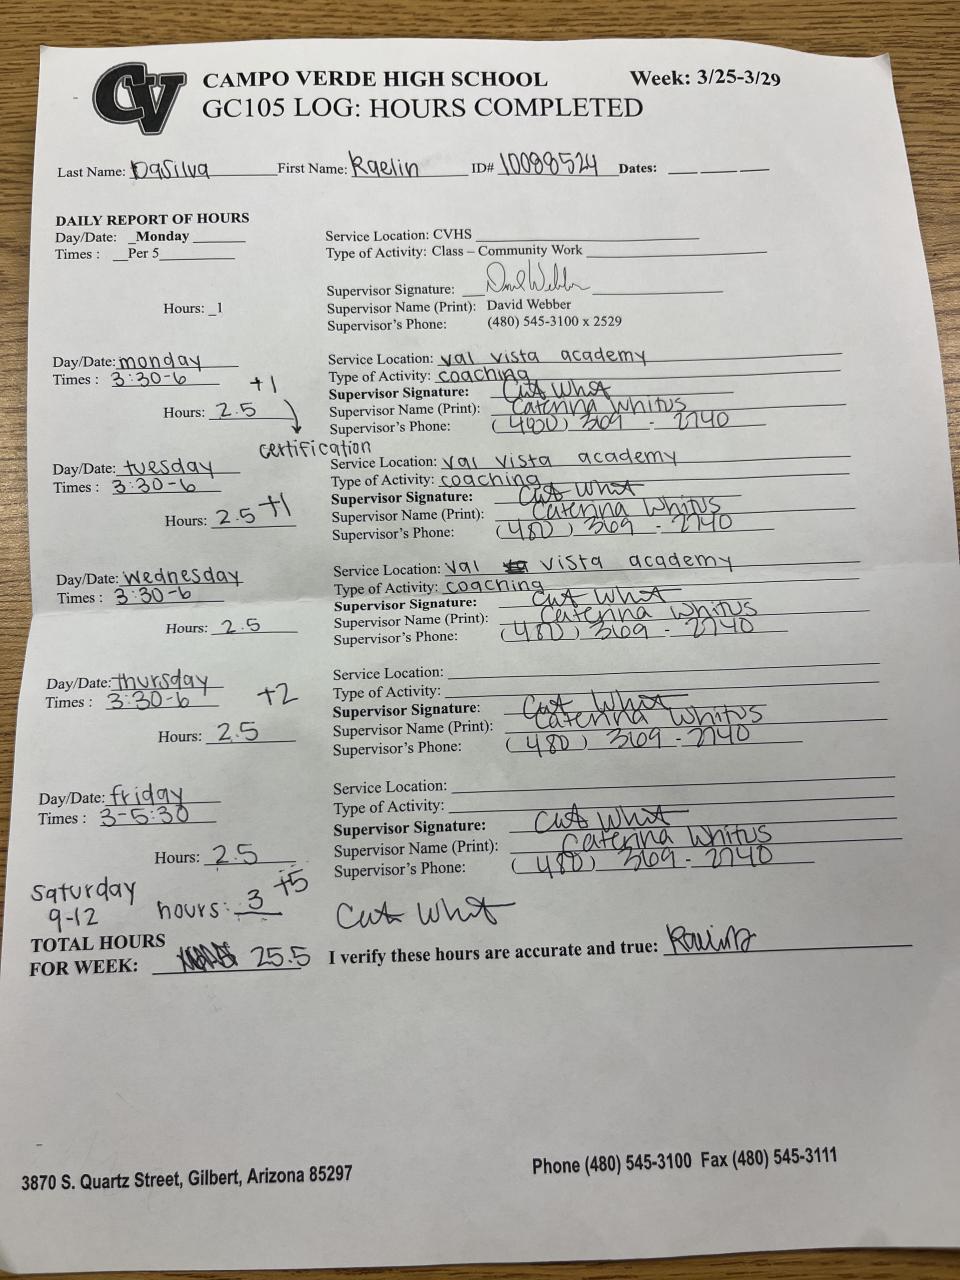 CV CAMPO VERDE HIGH SCHOOL Week: 3/25-3/29
GC105 LOG: HOURS COMPLETED
Last Name: DaSilva First Name: Raelin ID# 10088524 Dates: ___ ___ ___
DAILY REPORT OF HOURS
Day/Date: _Monday ______ Service Location: CVHS
Times : __Per 5________ Type of Activity: Class – Community Work
Supervisor Signature:
Hours: _1 Supervisor Name (Print): David Webber
Supervisor's Phone: (480) 545-3100 x 2529
Day/Date: monday Service Location: val vista academy
Times : 3:30-6 +1 Type of Activity: coaching
Supervisor Signature: Cat Whit
Hours: 2.5 Supervisor Name (Print): Caterina Whitus
Supervisor's Phone: (480) 369 - 2740
certification
Day/Date: tuesday Service Location: val vista academy
Times : 3:30-6 Type of Activity: coaching
Supervisor Signature: Cat Whit
Hours: 2.5 +1 Supervisor Name (Print): Caterina Whitus
Supervisor's Phone: (480) 369 - 2740
Day/Date: wednesday Service Location: val vista academy
Times : 3:30-6 Type of Activity: coaching
Supervisor Signature: Cat Whit
Hours: 2.5 Supervisor Name (Print): Caterina Whitus
Supervisor's Phone: (480) 369 - 2740
Day/Date: thursday Service Location:
Times : 3:30-6 +2 Type of Activity:
Supervisor Signature: Cat Whit
Hours: 2.5 Supervisor Name (Print): Caterina Whitus
Supervisor's Phone: (480) 369 - 2740
Day/Date: friday Service Location:
Times : 3-5:30 Type of Activity:
Supervisor Signature: Cat Whit
Hours: 2.5 Supervisor Name (Print): Caterina Whitus
Supervisor's Phone: (480) 369 - 2740
saturday
9-12 hours: 3 +5 Cat Whit
TOTAL HOURS
FOR WEEK: 25.5 I verify these hours are accurate and true:
3870 S. Quartz Street, Gilbert, Arizona 85297 Phone (480) 545-3100 Fax (480) 545-3111